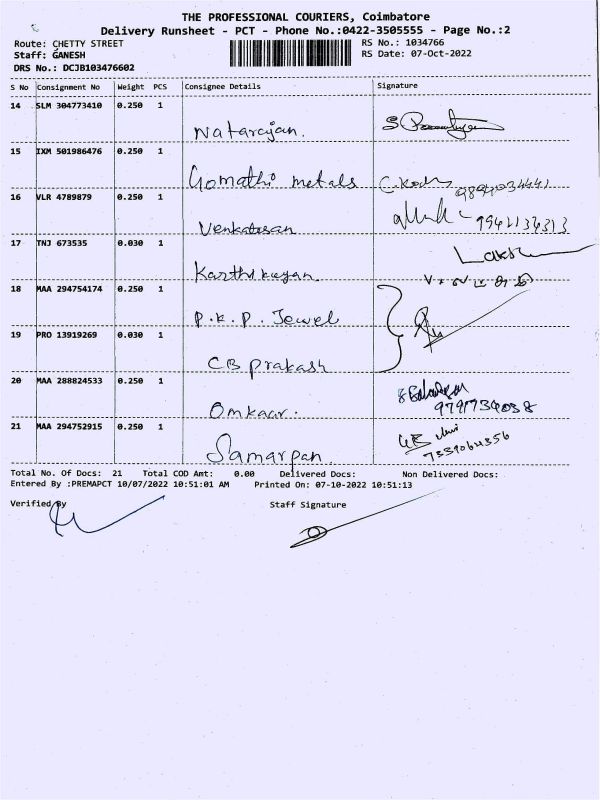 THE PROFESSIONAL COURIERS, Coimbatore
Delivery Runsheet - PCT - Phone No.:0422-3505555 - Page No.:2
Route: CHETTY STREET
RS No.: 1034766
Staff: GANESH
RS Date: 07-Oct-2022
DRS No.: DCJB103476602
S No Consignment No Weight PCS Consignee Details Signature
14 SLM 304773410 0.250 1
Natarajan.
15 IXM 501986476 0.250 1
Gomathi metals
9894034441
16 VLR 4789879 0.250 1
Venkatesan
9941134313
17 TNJ 673535 0.030 1
Karthikeyan.
18 MAA 294754174 0.250 1
P.K.P. Jewel
19 PRO 13919269 0.030 1
CB Prakash
20 MAA 288824533 0.250 1
Omkaar.
9791734038
21 MAA 294752915 0.250 1
Samarpan.
7339064356
Total No. Of Docs: 21 Total COD Amt: 0.00 Delivered Docs: Non Delivered Docs:
Entered By :PREMAPCT 10/07/2022 10:51:01 AM Printed On: 07-10-2022 10:51:13
Verified By Staff Signature